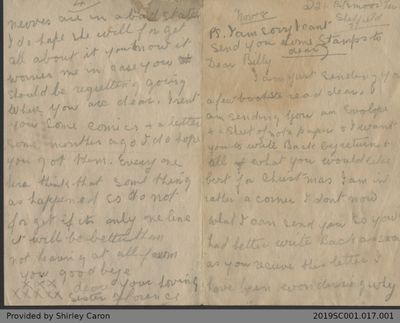 Nov 5
Sheffield
PS. I am sorry I cant
send you some stamps to
Dear Billy dear
I am just sending you
a few books to read dear. I
am sending you an Envelope
+ a sheet of note paper I want
you to write Back by return +
all of what you would like
best for Christmas I am in
rather a corner I dont now
what I can send you so you
had better write back as soon
as you receive this letter. I
have been wondering why
4
nerves are in a bad state
I do hope she will for get
all about it you know it
worries me in case you
should be regretting going
where you are dear. I sent
you some comics + a letter
some months ago I do hope
you got them. Every one
here think that something
as happened so do not
for get if its only one line
it will be better than
not hearing at all from
you good bye
dear your loving
Sister Florence
xxxx
xxxxx
Provided by Shirley Caron
2019SC001.017.001